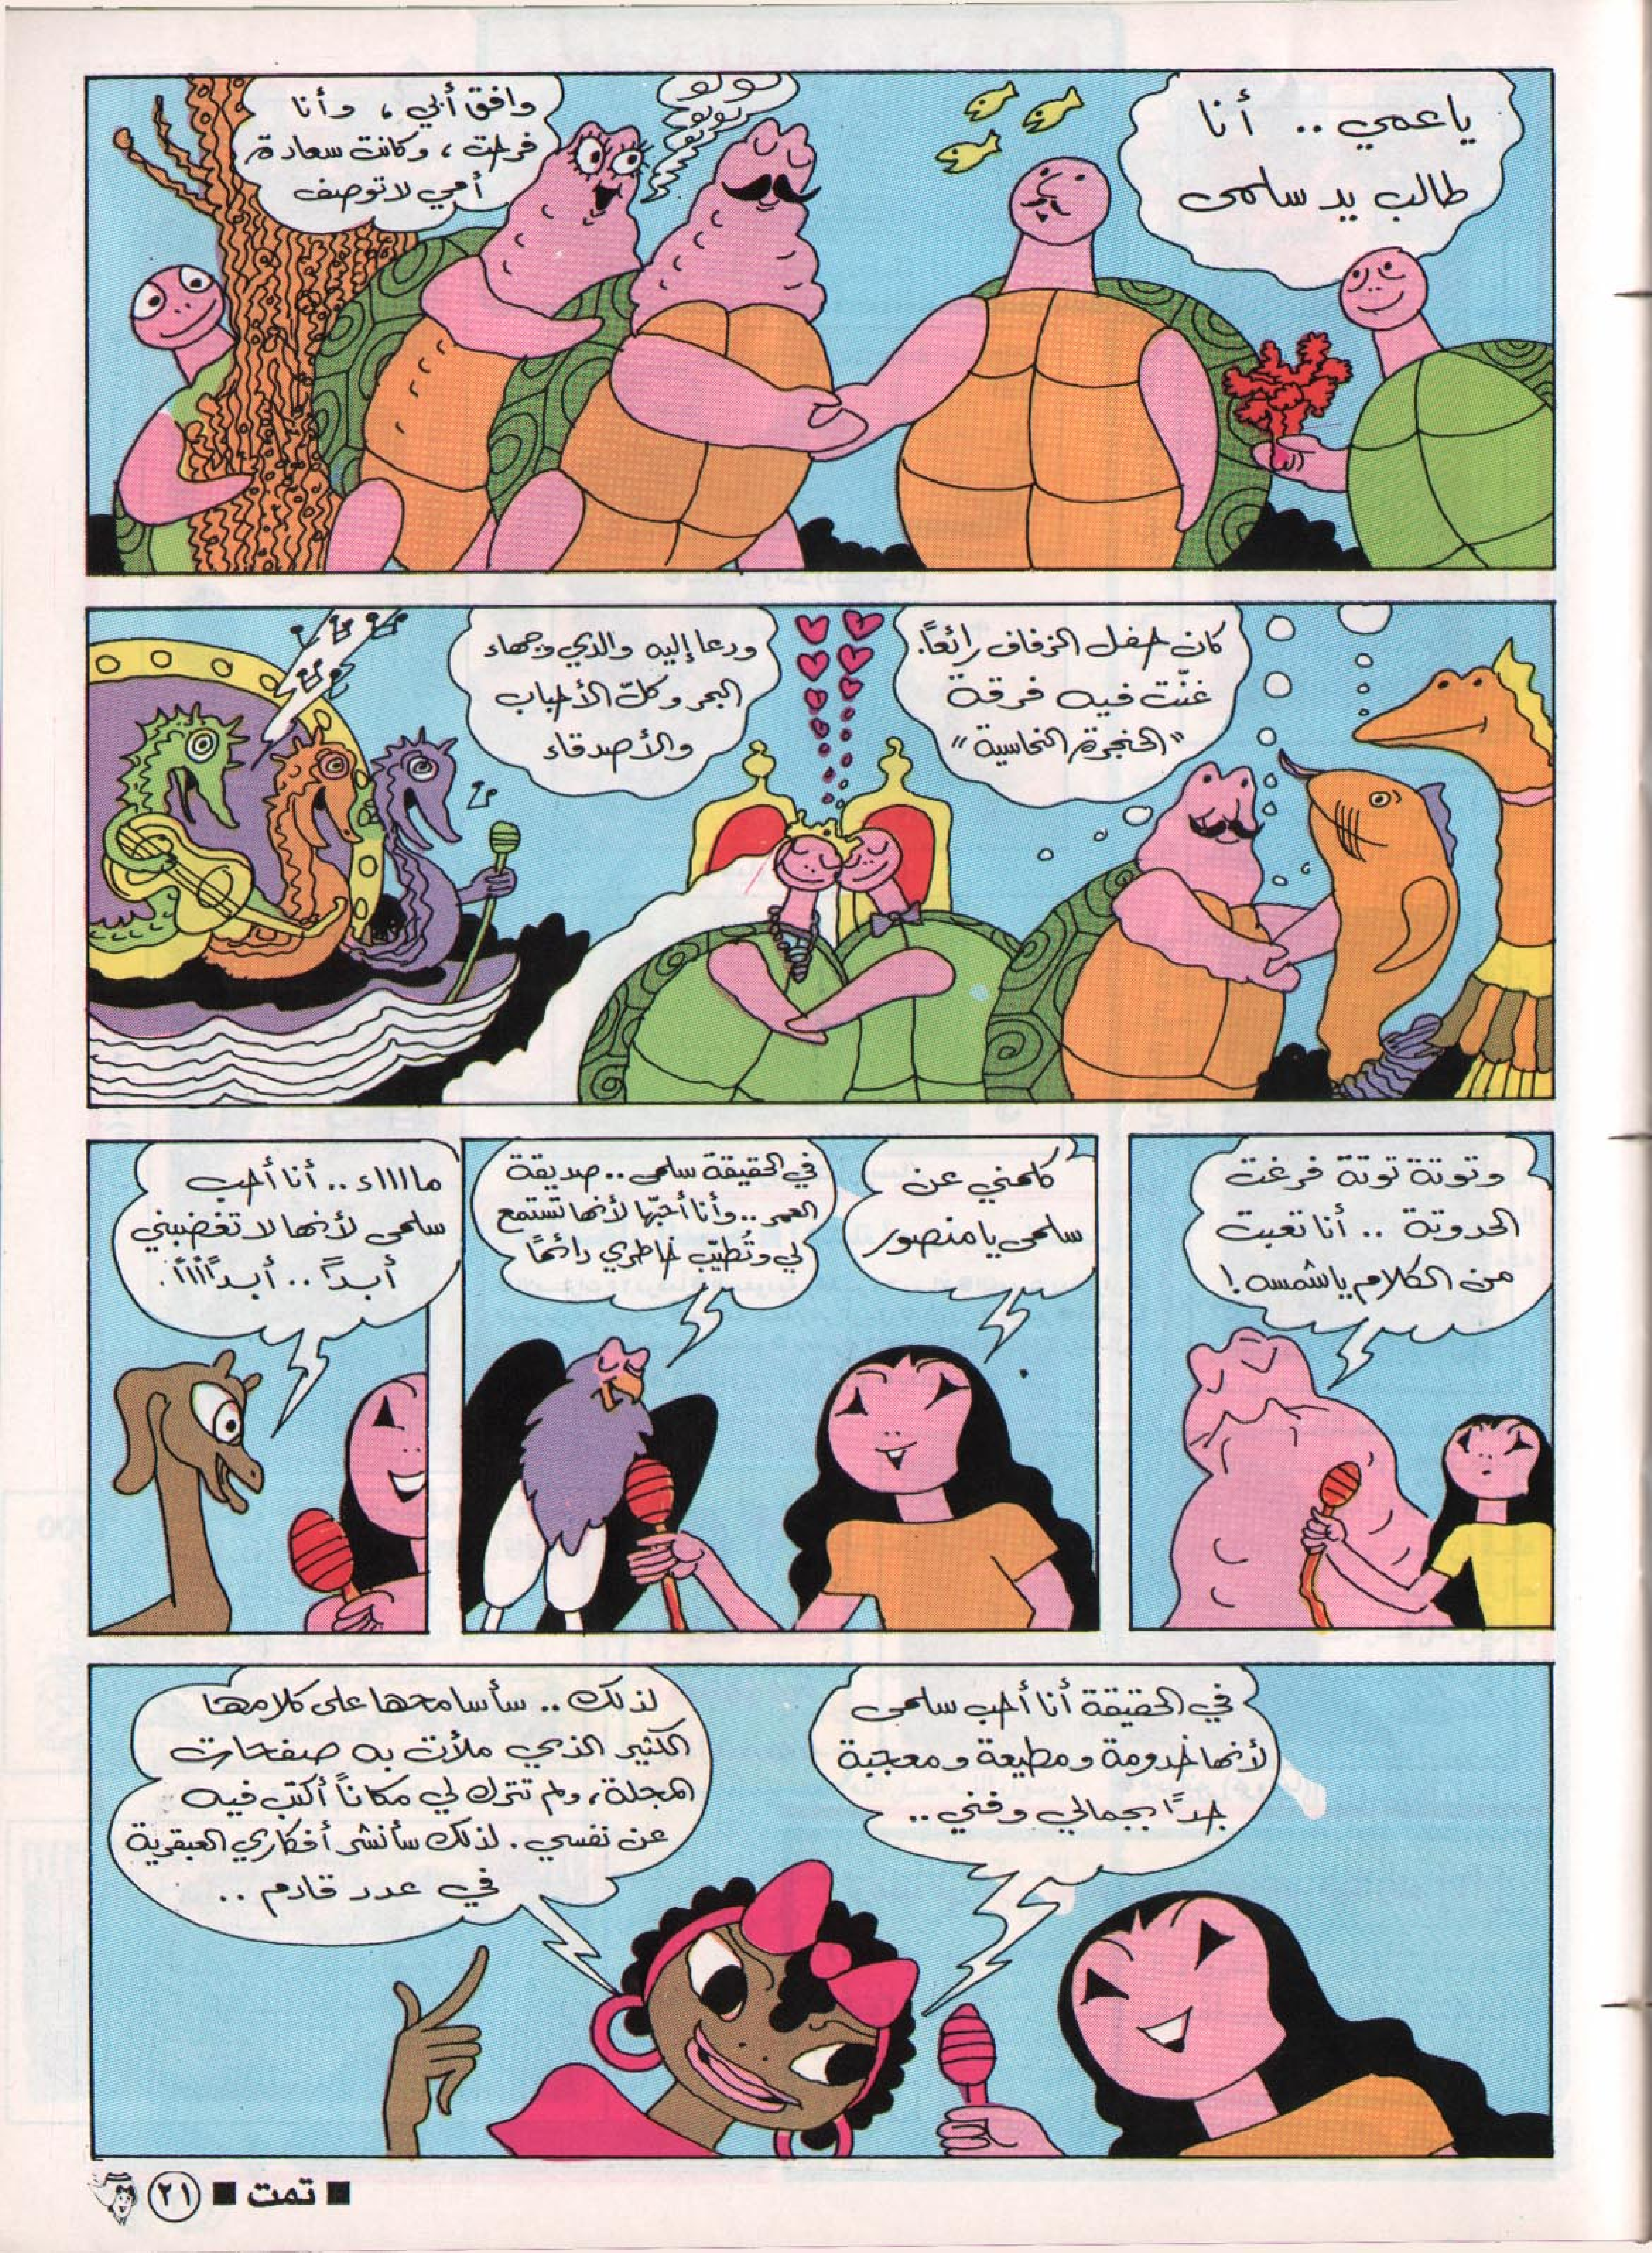 ياعمي .. أنا
طالب يد سلمى
لولو
لولولو
وافق أبي ، وأنا
فرحت ، وكانت سعادة
أمي لا توصف
كان حفل الزفاف رائعاً.
غنّت فيه فرقة
"الحنجرة النحاسية"
ودعا إليه والدي وجهاء
البحر وكلّ الأحباب
والأصدقاء
وتوتة توتة فرغت
الحدوتة .. أنا تعبت
من الكلام يا شمسه !
كلمني عن
سلمى يا منصور
في الحقيقة سلمى .. صديقة
العمر .. وأنا أحبّها لأنها تستمع
لي وتُطيّب خاطري دائماً
مااااء .. أنا أحب
سلمى لأنها لا تغضبني
أبداً .. أبداًأأأ .
في الحقيقة أنا أحب سلمى
لأنها خدومة ومطيعة ومعجبة
جداً بجمالي وفني ..
لذلك .. سأسامحها على كلامها
الكثير الذي ملأت به صفحات
المجلة ، ولم تترك لي مكاناً أكتب فيه
عن نفسي . لذلك سأنشر أفكاري العبقرية
في عدد قادم ..
■ تمت ■ ٢١